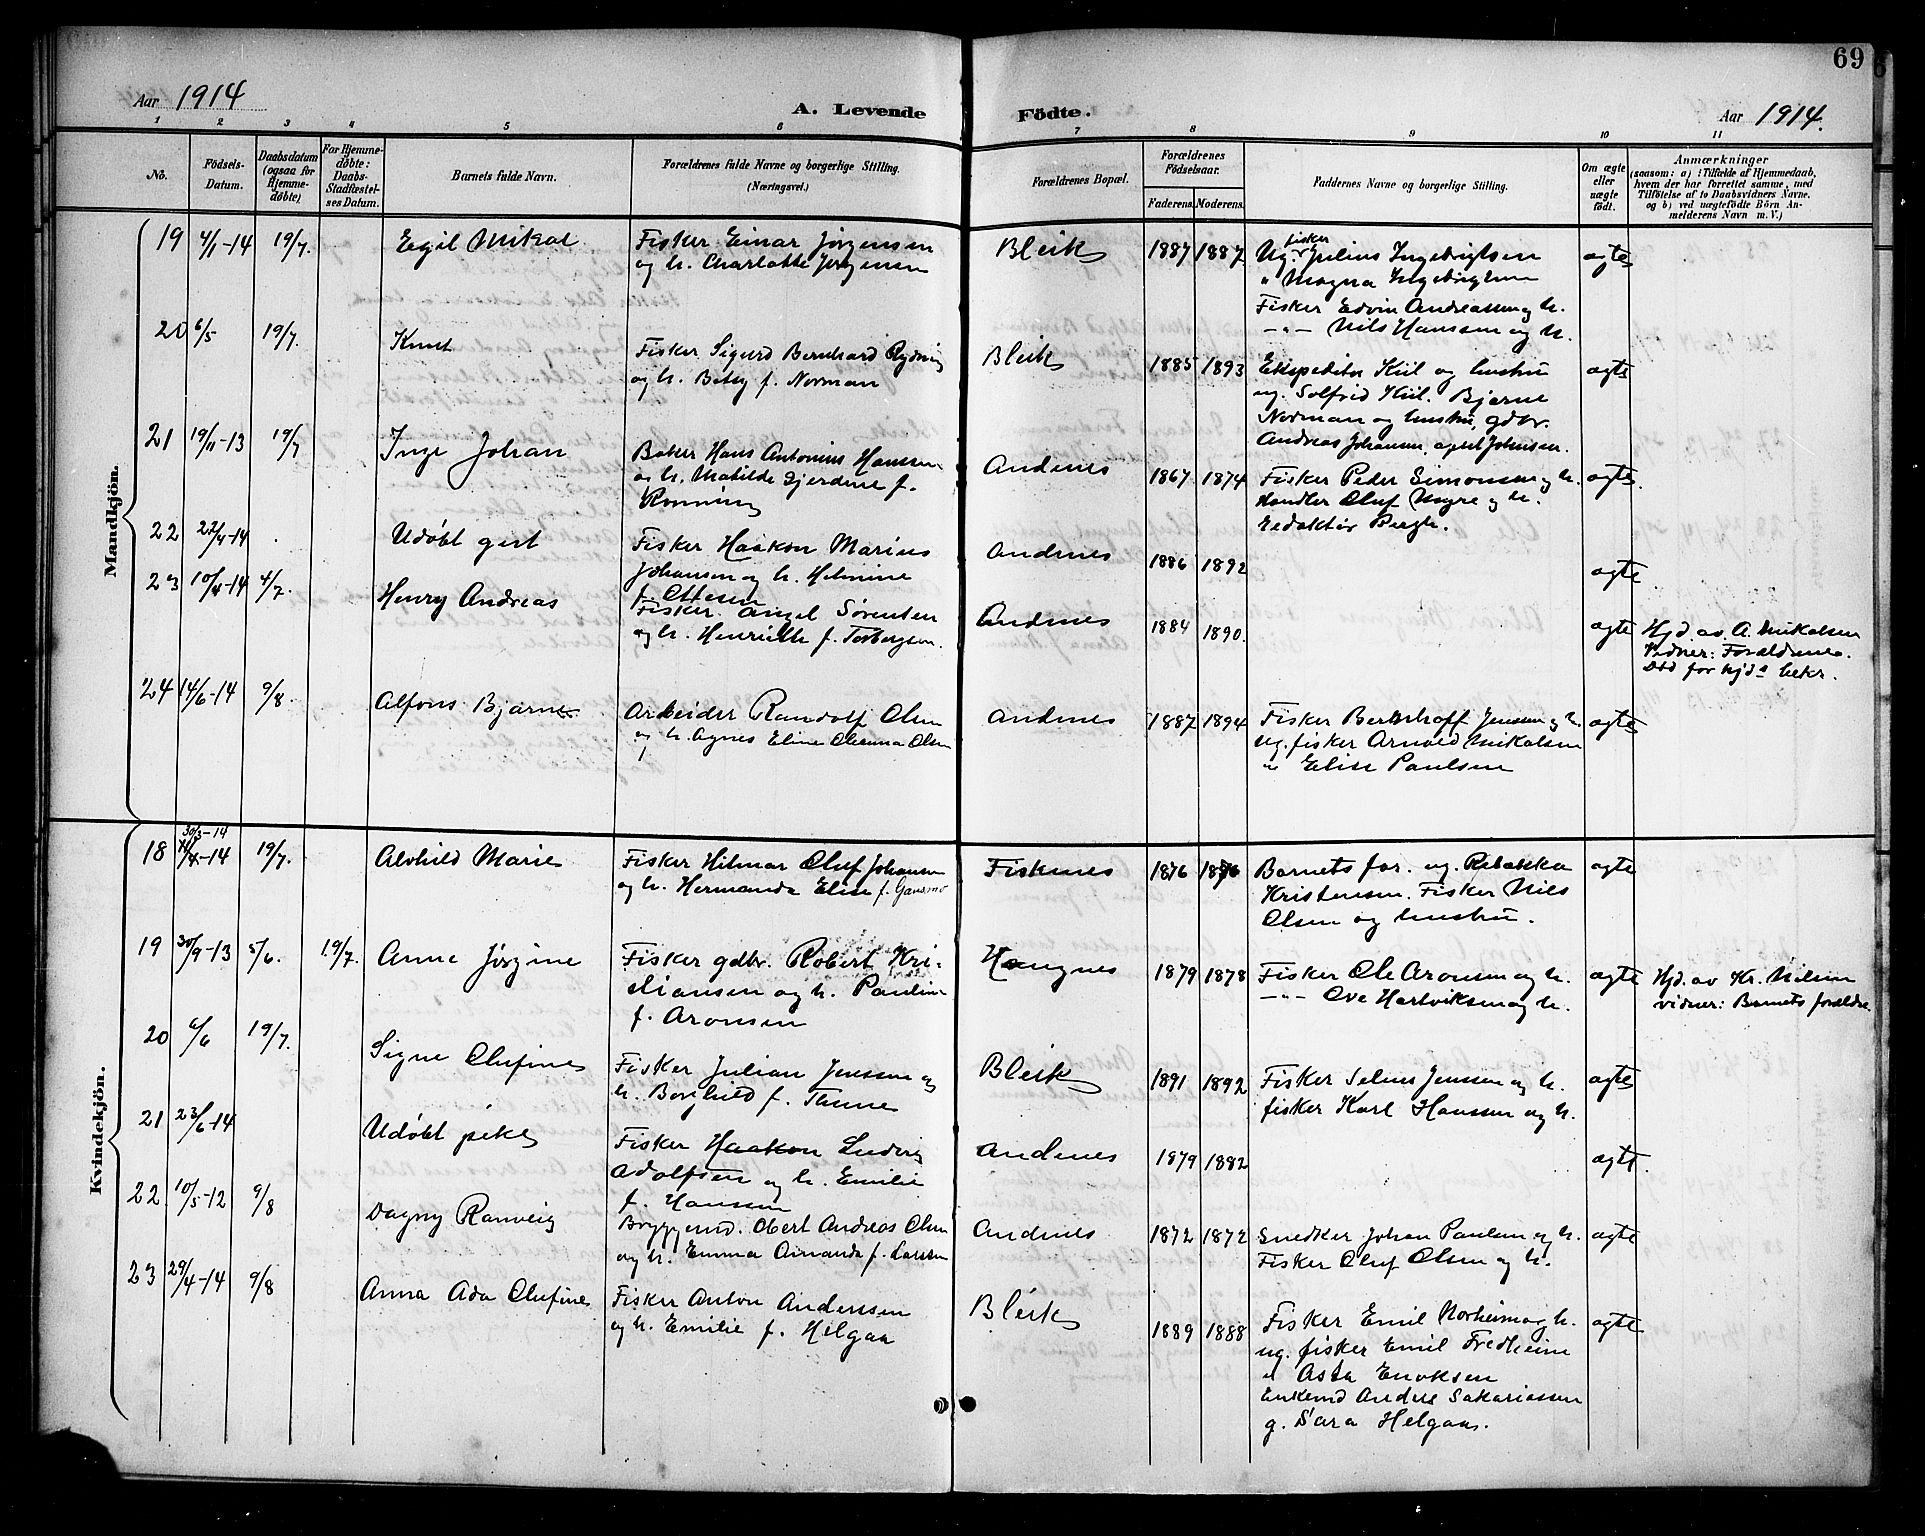 69
Aar 1914
A. Levende
Födte.
Aar 1914.
1 2 3 4 5 6 7 8 9 10 11
No.
Födsels-Datum.
Daabsdatum (ogsaa for Hjemme-döbte)
For Hjemme-döbte: Daabs-Stadfæstel-ses Datum.
Barnets fulde Navn.
Forældrenes fulde Navne og borgerlige Stilling.
(Næringsvei.)
Forældrenes Bopæl.
Forældrenes Födselsaar.
Faderens. Moderens.
Faddernes Navne og borgerlige Stilling.
Om ægte eller uægte födt.
Anmærkninger
(saasom: a) i Tilfælde af Hjemmedaab,
hvem der har forrettet samme, med
Tilföielse af to Daabsvidners Navne,
og b) ved uægtefödte Börn An-
melderens Navn m. V.)
Mandkjön.
19 4/1-14 19/7. Egil Mikal
Fisker Einar Jørgensen
og h. Charlotte Jørgensen
Bleik 1887 1887
Ug. fisker Julius Ingebrigtsen
" Magna Ingebrigtsen
Fisker Edvin Andreassen og h.
-"- Nils Hanssen og h.
ægte
20 6/5 19/7. Knut
Fisker Sigurd Bernhard Rydning
og h. Betsy f. Norman
Bleik 1885 1893
Ekspeditør Kiil og hustru
ug. Solfrid Kiil. Bjarne
Norman og hustru, gdbr.
Andreas Johansen, Johnsen.
ægte
21 19/11-13 19/7 Inge Johan
Baker Hans Antonius Hanssen
og h. Matilde Gjerdine f.
Rønning
Andenes 1867 1874
Fisker Peder Simonsen og h.
Handler Oluf Myre og h.
Redaktør Bergh.
ægte
22 22/4-14 Udøbt gut
Fisker Haakon Marius
Johansen og h. Helmine
f. Ottesen
Andenes 1886 1892
ægte
23 10/4-14 4/7. Henry Andreas
Fisker Angel Sørensen
og h. Henriette f. Torbergsen.
Andenes 1884 1890.
ægte
Hjd. av A. Mikalsen
Vidner: Forældrene.
Død før hjd.s bekr.
24 14/6-14 9/8. Alfons Bjarne
Arbeider Randolf Olsen
og h. Agnes Eline Olsen
Andenes 1887 1894
Fisker Bernhoff Jenssen og h.
ug. fisker Arnold Mikalsen
" Elise Paulsen
ægte
Kvindekjön.
18 30/3-14
/4-14 19/7. Alvhild Marie
Fisker Hilmar Oluf Johansen
og h. Hermanda Elise f. Gausmo
Fiskenes 1876 1876
Barnets far. ug. Rebekka
Kristensen. Fisker Nils
Olsen og hustru.
ægte
19 30/9-13 5/6. 19/7. Anne Jørgine
Fisker gdbr. Robert Kri-
stiansen og h. Pauline
f. Aronsen
Haugnes 1879 1878
Fisker Ole Aronsen og h.
-"- Ove Hartviksen og h.
ægte
Hjd. av Kr. Nilsen
vidner: Barnets forældre.
20 6/6 19/7. Signe Olufine
Fisker Julian Jenssen og
h. Borghild f. Thune
Bleik 1891 1892
Fisker Selius Jenssen og h.
fisker Karl Hanssen og h.
ægte
21 23/6-14 Udøbt pike
Fisker Haakon Ludvig
Adolfsen og h. Emilie
f. Hanssen
Andenes 1879 1882
ægte.
22 10/5-12 9/8 Dagny Ranveig
Bryggemd. Obert Andreas Olsen
og h. Emma Amanda f. Larssen
Andenes 1872 1872
Snedker Johan Paulsen og h.
Fisker Oluf Olsen og h.
ægte
23 29/4-14 9/8 Anna Ada Olufine
Fisker Anton Anderssen
og h. Emilie f. Helgaa
Bleik 1889 1888
Fisker Emil Norheim og h.
ug. fisker Emil Fredheim
" Asta Enoksen
Enkemd Anders Sakariassen
g. Sara Helgaas.
ægte